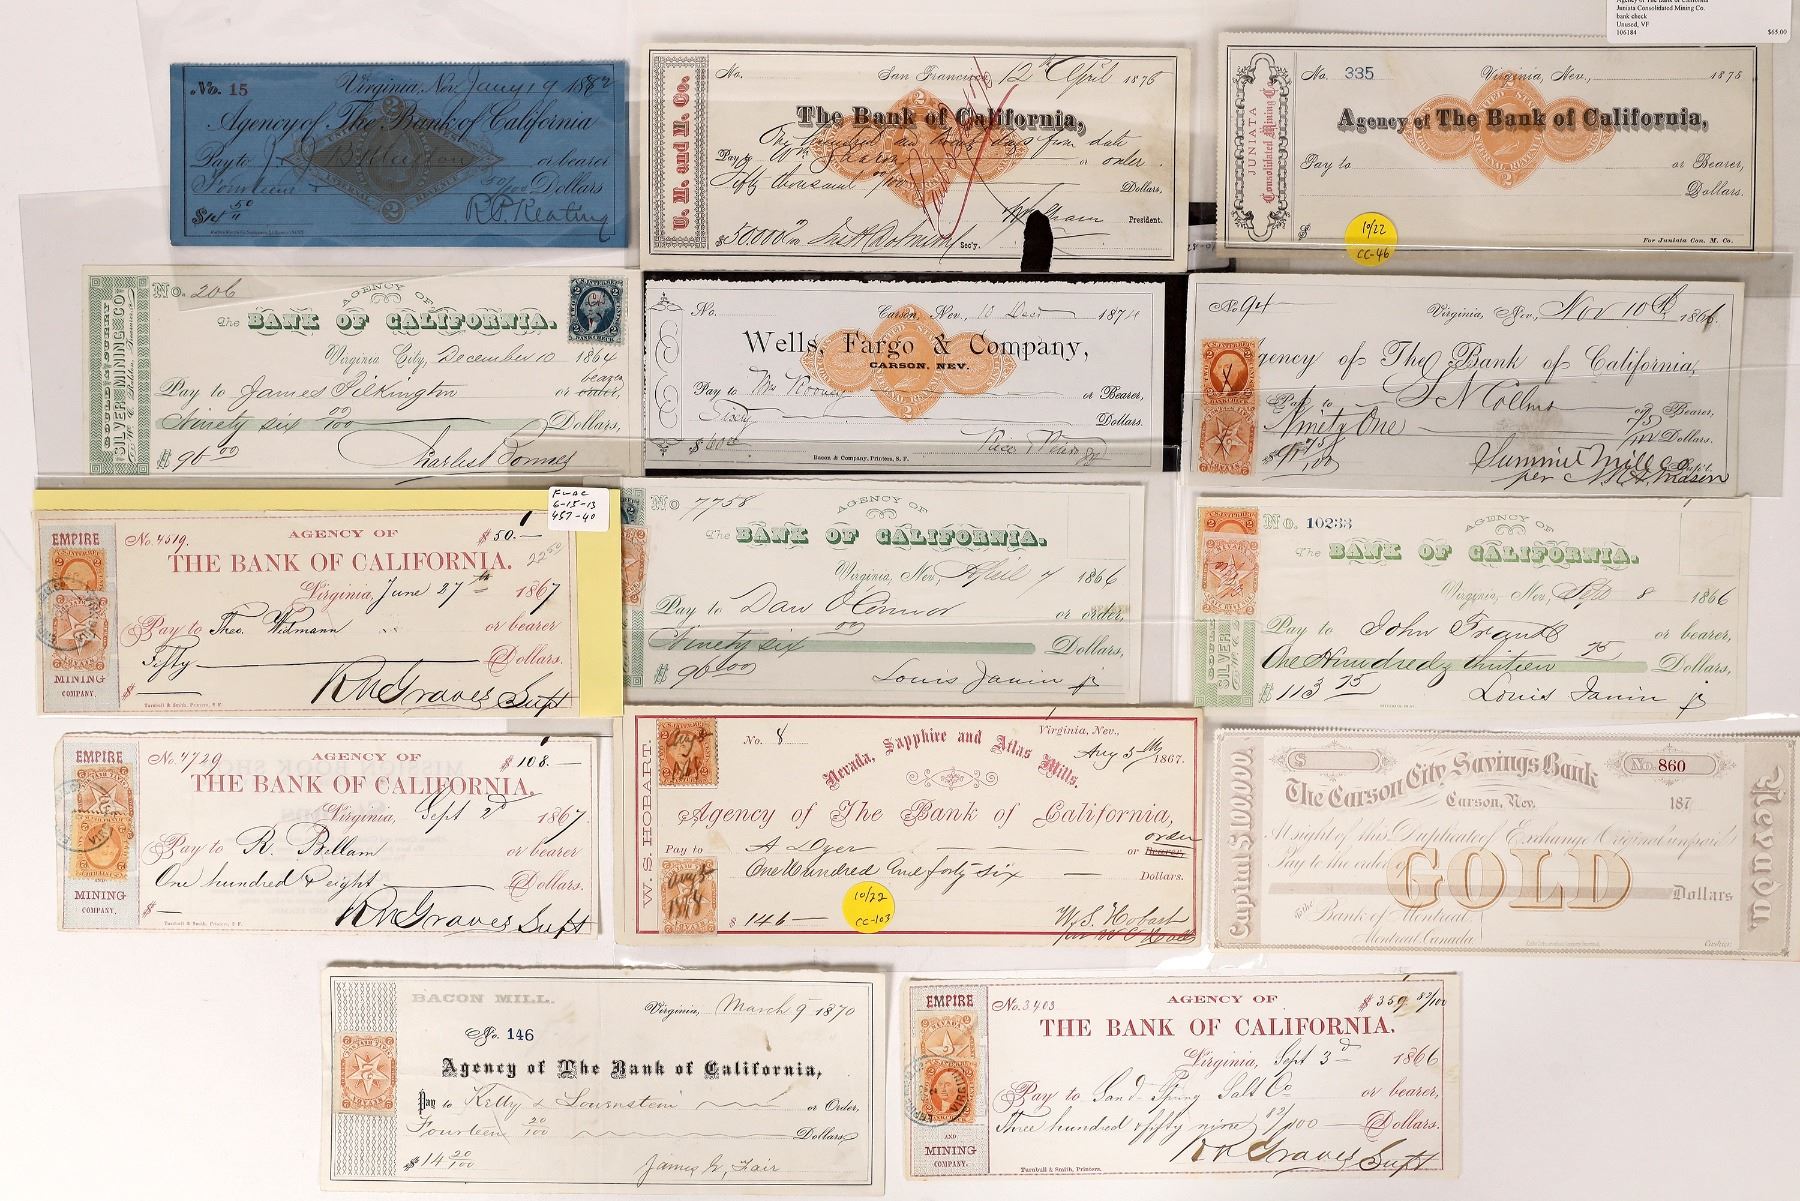 Agency of The Bank of California
Juniata Consolidated Mining Co.
bank check
Unused, VF
106184 $65.00
No. 15
Virginia, Nev. Jany 19 1882
Agency of The Bank of California
Pay to J. or bearer
Fourteen 50/100 Dollars
$14 50
R. P. Keating
U. M. and M. Co.
No. San Francisco, 12th April 1876
The Bank of California,
One hundred and days from date
Pay to Wm Sharon or order
Fifty thousand 00/100 Dollars,
President.
$50,000 Sec'y.
JUNIATA
Consolidated Mining Co.
No. 335 Virginia, Nev., 1875
Agency of The Bank of California,
Pay to or Bearer,
Dollars.
$
For Juniata Con. M. Co.
10/22
CC-46
GOULD & CURRY
SILVER MINING CO.
No. 206
AGENCY OF
The BANK OF CALIFORNIA.
Virginia City, December 10 1864
Pay to James Pilkington or order, bearer
Ninety six 00/100 Dollars,
$96 00
Charles Bonner
No. Carson, Nev., 10 Decr 1874
Wells, Fargo & Company,
CARSON, NEV.
Pay to Mrs Rooney or Bearer,
Sixty Dollars.
$60 00
Bacon & Company, Printers, S. F.
No. 94 Virginia, Nev., Nov 10th 1866.
Agency of The Bank of California,
Pay to N Collins or Bearer,
Ninety One 75/100 Dollars.
$91 75/100
Summit Mill Co Supt.
per
FUAC
6-15-13
457-40
EMPIRE
MINING
COMPANY.
No. 4519. AGENCY OF $50.—
THE BANK OF CALIFORNIA.
22 50
Virginia, June 27th 1867
Pay to Theo. Widmann or bearer
Fifty Dollars.
$
R M Graves Supt
Turnbull & Smith, Printers, S. F.
No 7758
AGENCY OF
The BANK OF CALIFORNIA.
Virginia, Nev., April 7 1866
Pay to Dan O'Connor or order,
Ninety six 00 Dollars,
$96 00
Louis Janin Jr
SILVER
No. 10233
AGENCY OF
The BANK OF CALIFORNIA.
Virginia, Nev., Sept 8 1866
Pay to John Grant or bearer,
One Hundred & thirteen 75 Dollars,
$113 75
Louis Janin Jr
EMPIRE
AND
MINING
COMPANY.
No. 4729 AGENCY OF $108.—
THE BANK OF CALIFORNIA.
Virginia, Sept 2d 1867.
Pay to R. Bellam or bearer
One hundred & eight Dollars.
$
R M Graves Supt
Turnbull & Smith, Printers, S. F.
W. S. HOBART.
No. 8 Virginia, Nev.,
Aug 5th 1867.
Nevada, Sapphire and Atlas Mills.
Agency of The Bank of California,
Pay to A Dyer or Bearer, order
One Hundred and forty six Dollars.
$146—
W. S. Hobart
10/22
CC-103
Capital $100,000
$ No. 860
The Carson City Savings Bank
Carson, Nev. 187
At sight of this Duplicate of Exchange (Original unpaid)
Pay to the order of
GOLD
Dollars
To the
Bank of Montreal
Montreal Canada
Cashier.
Nevada
BACON MILL.
Virginia, March 9 1870
No. 146
Agency of The Bank of California,
Pay to Kelly & Lowenstein or Order,
Fourteen 20/100 Dollars
$14 20/100
James G. Fair
EMPIRE
AND
MINING
COMPANY.
No. 3403 AGENCY OF $359 82/100
THE BANK OF CALIFORNIA.
Virginia, Sept 3d 1866
Pay to Sand Spring Salt Co or bearer
Three hundred & fifty nine 82/100 Dollars.
$
R M Graves Supt
Turnbull & Smith, Printers.